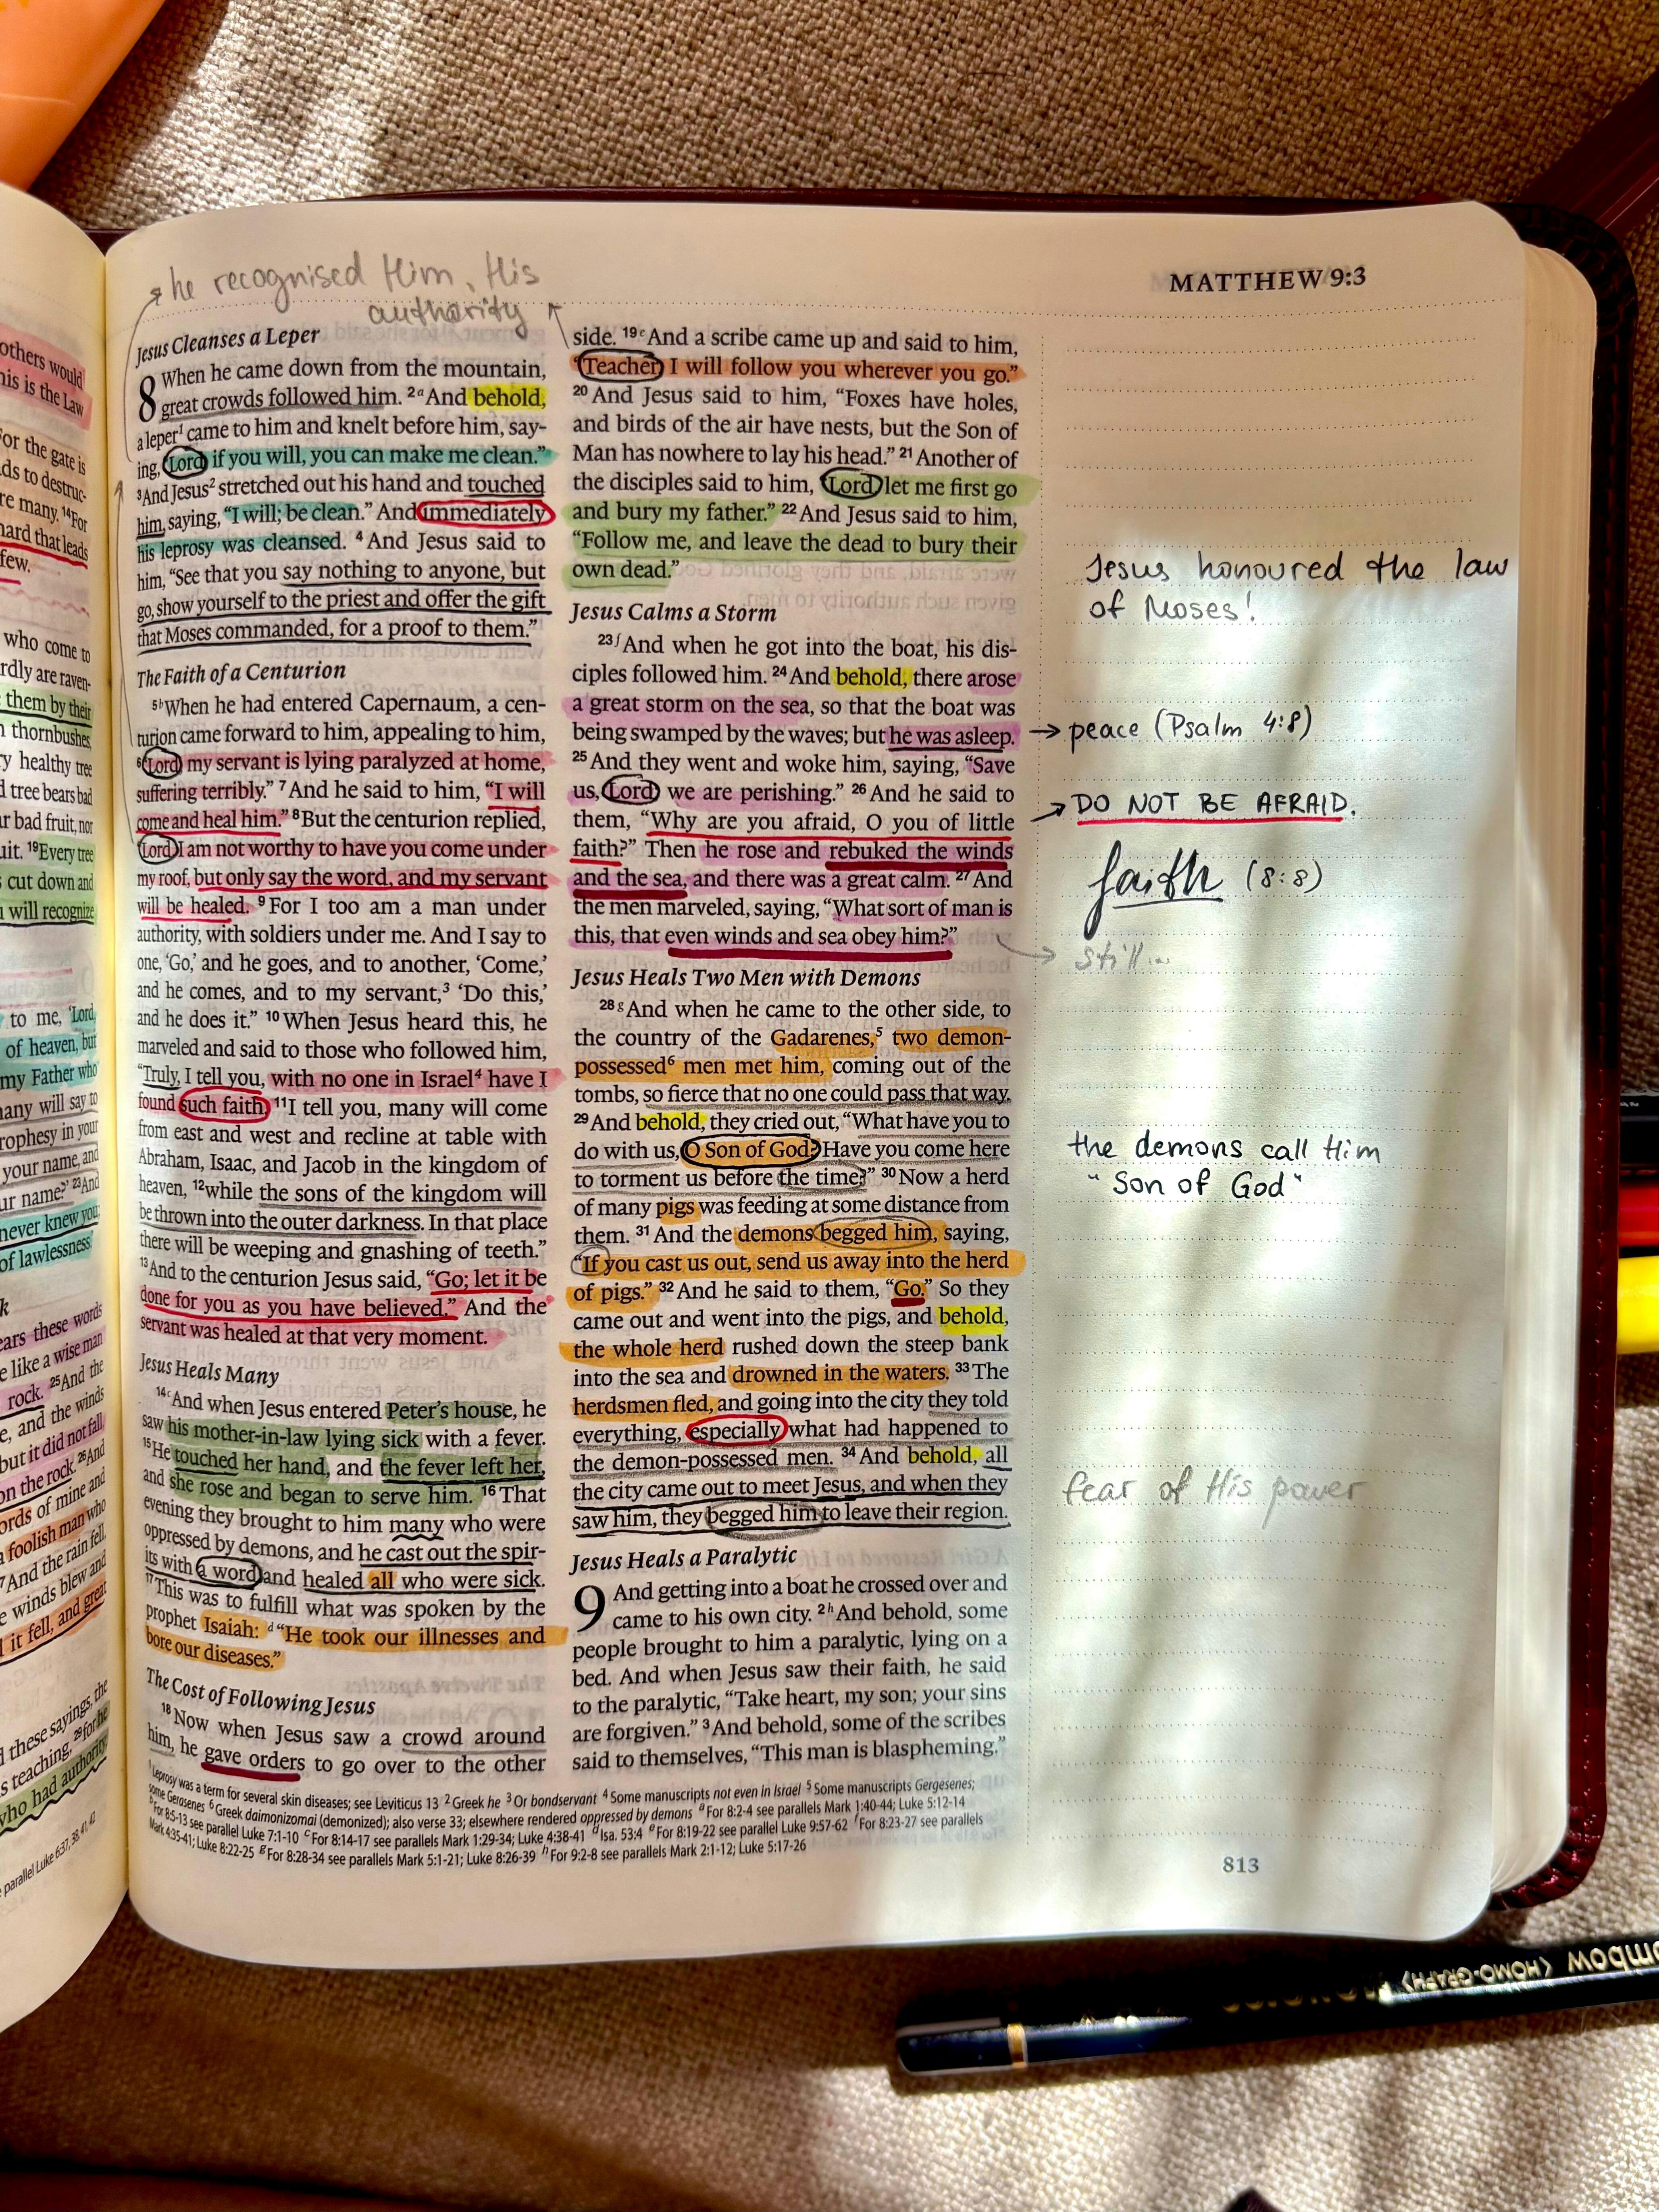 others would
his is the Law
For the gate is
ds to destruc-
re many. 14For
hard that leads
few.
who come to
rdly are raven-
them by their
thornbushes,
ry healthy tree
d tree bears bad
ur bad fruit, nor
uit. 19Every tree
cut down and
will recognize
to me, 'Lord,
of heaven, but
my Father who
many will say to
rophesy in your
your name, and
ur name?' 23And
never knew you;
of lawlessness.'
k
ears these words
e like a wise man
rock. 25And the
e, and the winds
but it did not fall,
on the rock. 26And
ords of mine and
foolish man who
27And the rain fell,
e winds blew and
it fell, and great
these sayings, the
s teaching, 29for he
who had authority,
parallel Luke 6:37, 38, 41, 42
he recognised Him, His
authority
MATTHEW 9:3
Jesus Cleanses a Leper
8 When he came down from the mountain,
great crowds followed him. 2a And behold,
a leper1 came to him and knelt before him, say-
ing, "Lord, if you will, you can make me clean."
3And Jesus2 stretched out his hand and touched
him, saying, "I will; be clean." And immediately
his leprosy was cleansed. 4And Jesus said to
him, "See that you say nothing to anyone, but
go, show yourself to the priest and offer the gift
that Moses commanded, for a proof to them."
The Faith of a Centurion
5bWhen he had entered Capernaum, a cen-
turion came forward to him, appealing to him,
6"Lord, my servant is lying paralyzed at home,
suffering terribly." 7And he said to him, "I will
come and heal him." 8But the centurion replied,
"Lord, I am not worthy to have you come under
my roof, but only say the word, and my servant
will be healed. 9For I too am a man under
authority, with soldiers under me. And I say to
one, 'Go,' and he goes, and to another, 'Come,'
and he comes, and to my servant,3 'Do this,'
and he does it." 10When Jesus heard this, he
marveled and said to those who followed him,
"Truly, I tell you, with no one in Israel4 have I
found such faith. 11I tell you, many will come
from east and west and recline at table with
Abraham, Isaac, and Jacob in the kingdom of
heaven, 12while the sons of the kingdom will
be thrown into the outer darkness. In that place
there will be weeping and gnashing of teeth."
13And to the centurion Jesus said, "Go; let it be
done for you as you have believed." And the
servant was healed at that very moment.
Jesus Heals Many
14cAnd when Jesus entered Peter's house, he
saw his mother-in-law lying sick with a fever.
15He touched her hand, and the fever left her,
and she rose and began to serve him. 16That
evening they brought to him many who were
oppressed by demons, and he cast out the spir-
its with a word and healed all who were sick.
17This was to fulfill what was spoken by the
prophet Isaiah: d"He took our illnesses and
bore our diseases."
The Cost of Following Jesus
18Now when Jesus saw a crowd around
him, he gave orders to go over to the other
side. 19eAnd a scribe came up and said to him,
"Teacher, I will follow you wherever you go."
20And Jesus said to him, "Foxes have holes,
and birds of the air have nests, but the Son of
Man has nowhere to lay his head." 21Another of
the disciples said to him, "Lord, let me first go
and bury my father." 22And Jesus said to him,
"Follow me, and leave the dead to bury their
own dead."
Jesus Calms a Storm
23fAnd when he got into the boat, his dis-
ciples followed him. 24And behold, there arose
a great storm on the sea, so that the boat was
being swamped by the waves; but he was asleep.
25And they went and woke him, saying, "Save
us, Lord; we are perishing." 26And he said to
them, "Why are you afraid, O you of little
faith?" Then he rose and rebuked the winds
and the sea, and there was a great calm. 27And
the men marveled, saying, "What sort of man is
this, that even winds and sea obey him?"
Jesus Heals Two Men with Demons
28gAnd when he came to the other side, to
the country of the Gadarenes,5 two demon-
possessed6 men met him, coming out of the
tombs, so fierce that no one could pass that way.
29And behold, they cried out, "What have you to
do with us, O Son of God? Have you come here
to torment us before the time?" 30Now a herd
of many pigs was feeding at some distance from
them. 31And the demons begged him, saying,
"If you cast us out, send us away into the herd
of pigs." 32And he said to them, "Go." So they
came out and went into the pigs, and behold,
the whole herd rushed down the steep bank
into the sea and drowned in the waters. 33The
herdsmen fled, and going into the city they told
everything, especially what had happened to
the demon-possessed men. 34And behold, all
the city came out to meet Jesus, and when they
saw him, they begged him to leave their region.
Jesus Heals a Paralytic
9 And getting into a boat he crossed over and
came to his own city. 2hAnd behold, some
people brought to him a paralytic, lying on a
bed. And when Jesus saw their faith, he said
to the paralytic, "Take heart, my son; your sins
are forgiven." 3And behold, some of the scribes
said to themselves, "This man is blaspheming."
Jesus honoured the law
of Moses!
peace (Psalm 4:8)
DO NOT BE AFRAID.
faith (8:8)
still...
the demons call Him
"Son of God"
fear of His power
1Leprosy was a term for several skin diseases; see Leviticus 13 2Greek he 3Or bondservant 4Some manuscripts not even in Israel 5Some manuscripts Gergesenes;
some Gerasenes 6Greek daimonizomai (demonized); also verse 33; elsewhere rendered oppressed by demons aFor 8:2-4 see parallels Mark 1:40-44; Luke 5:12-14
bFor 8:5-13 see parallel Luke 7:1-10 cFor 8:14-17 see parallels Mark 1:29-34; Luke 4:38-41 dIsa. 53:4 eFor 8:19-22 see parallel Luke 9:57-62 fFor 8:23-27 see parallels
Mark 4:35-41; Luke 8:22-25 gFor 8:28-34 see parallels Mark 5:1-21; Luke 8:26-39 hFor 9:2-8 see parallels Mark 2:1-12; Luke 5:17-26
813
ombow (HOMO-GRAPH)